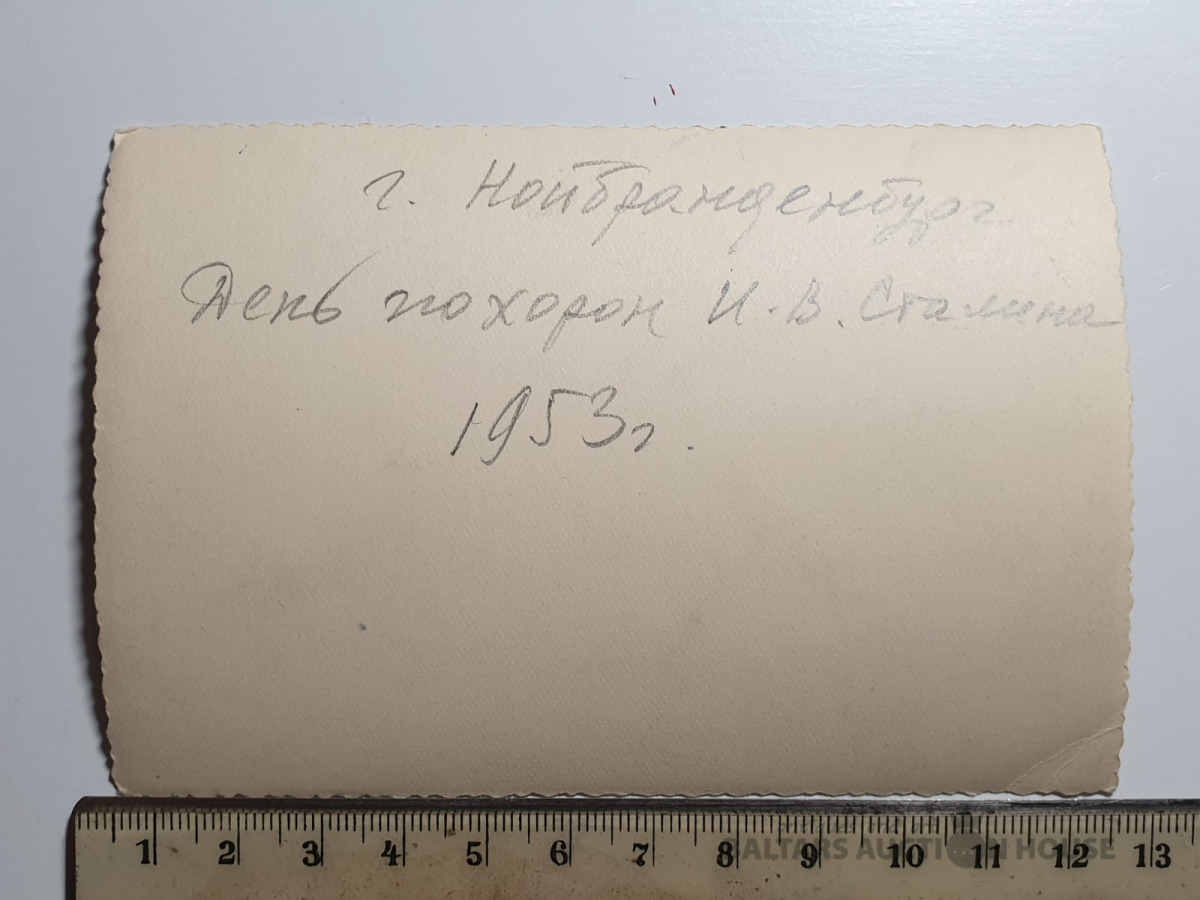 г. Нойбранденбург
День похорон И.В. Сталина
1953г.
1 2 3 4 5 6 7 8 9 10 11 12 13
BALTARS AUCTION HOUSE